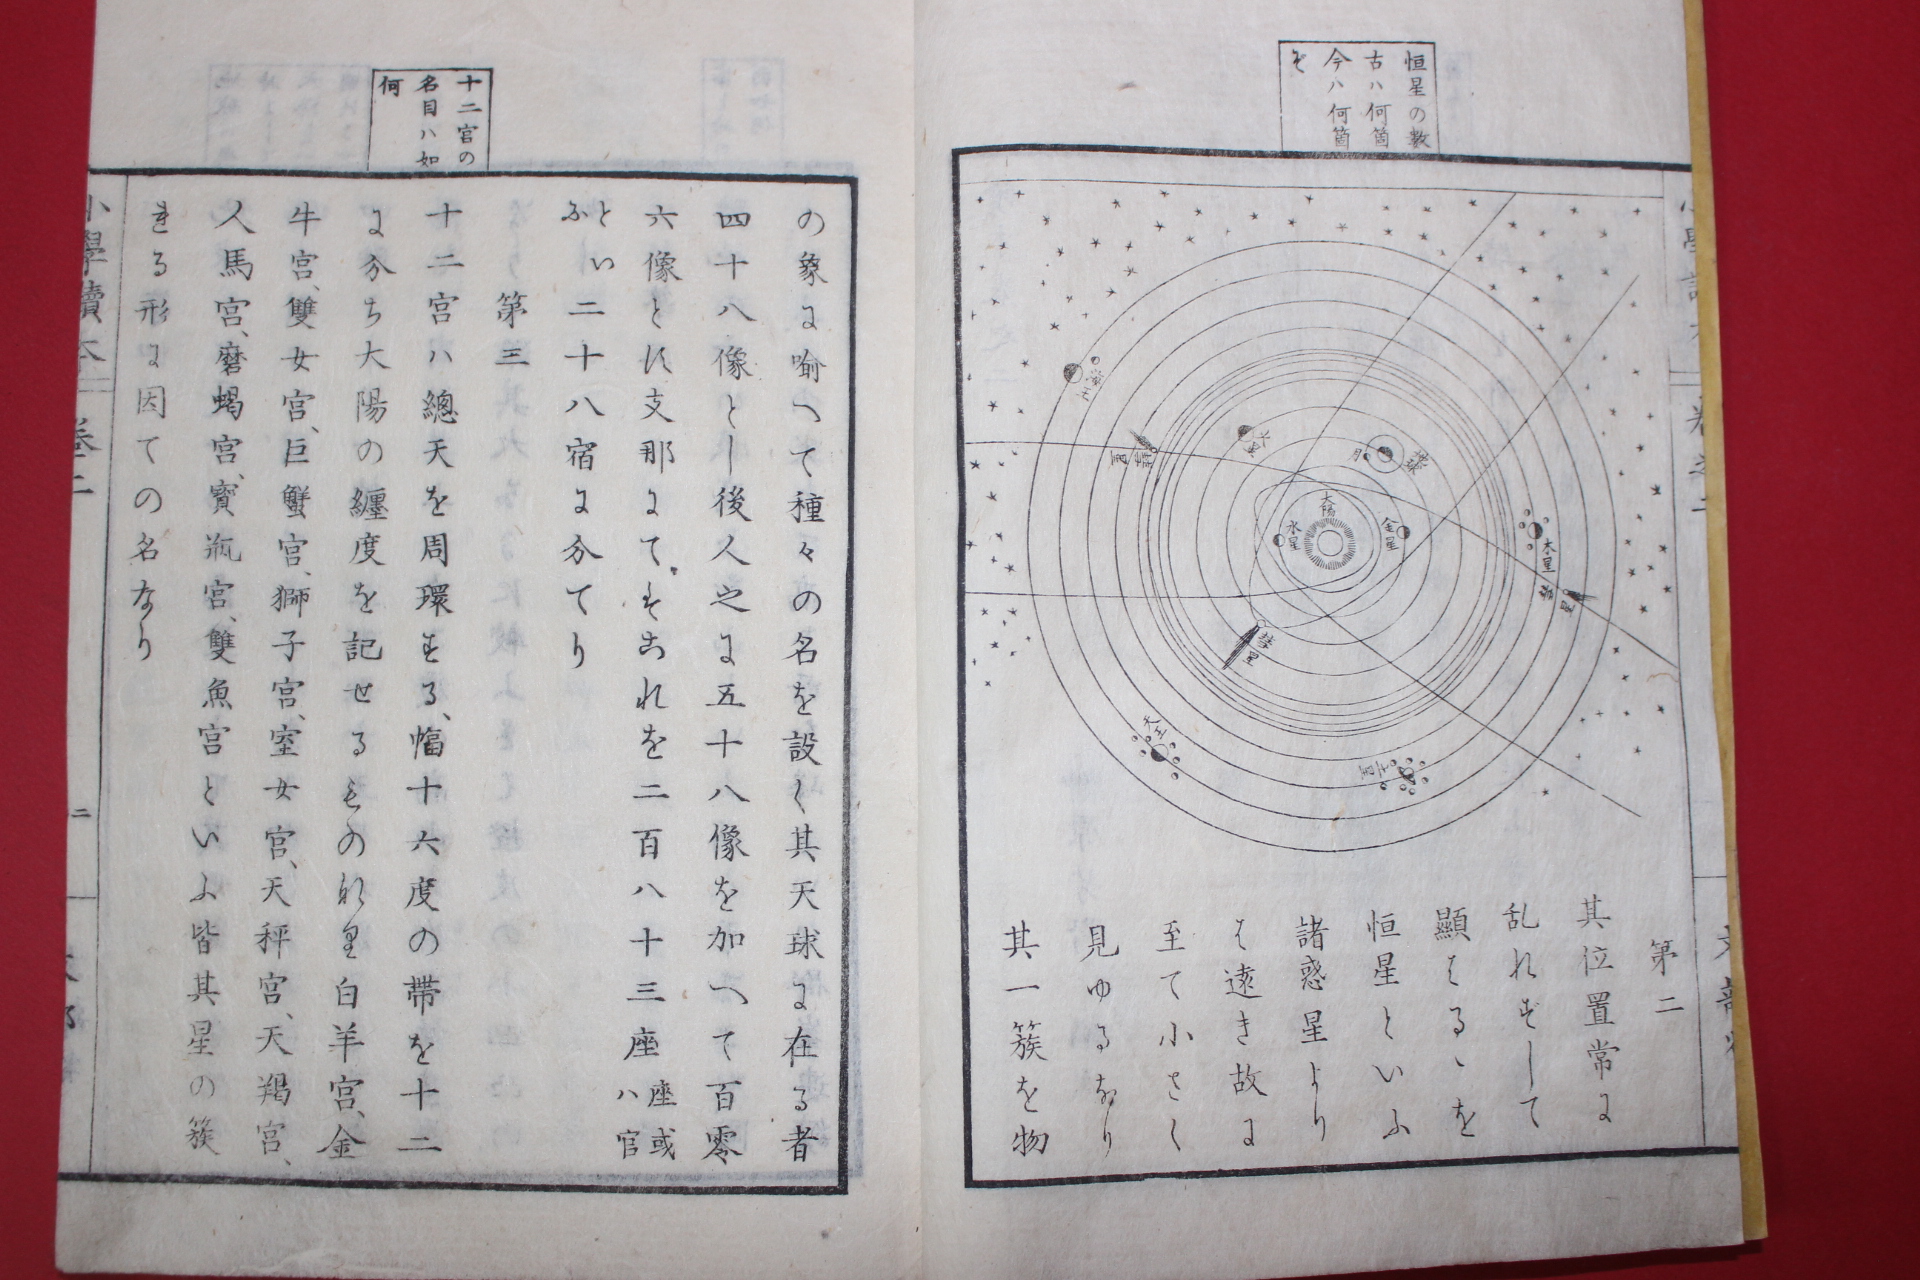 恒星の数
古ハ何箇
今ハ何箇
そ
海王
大陽
水星
金星
地球
月
火星
木星
土星
天王
彗星
彗星
彗星
第二
其位置常に
乱れずして
顯はるゝを
恒星といふ
諸惑星より
は遠き故に
至て小さく
見ゆるなり
其一簇を物
十二宮の
名目ハ如
何
の象に喻へて種々の名を設く其天球に在る者
四十八像とし後人之に五十八像を加へて百零
六像とす支那にてハこれを二百八十三座座或ハ官
といふ二十八宿に分てり
第三
十二宮ハ總天を周環する、幅十六度の帯を十二
に分ち大陽の纏度を記せるものなり白羊宮、金
牛宮、雙女宮、巨蟹宮、獅子宮、室女宮、天秤宮、天羯宮、
人馬宮、磨蝎宮、寶瓶宮、雙魚宮といふ皆其星の簇
まる形に因ての名なり
小學讀本 卷二
二